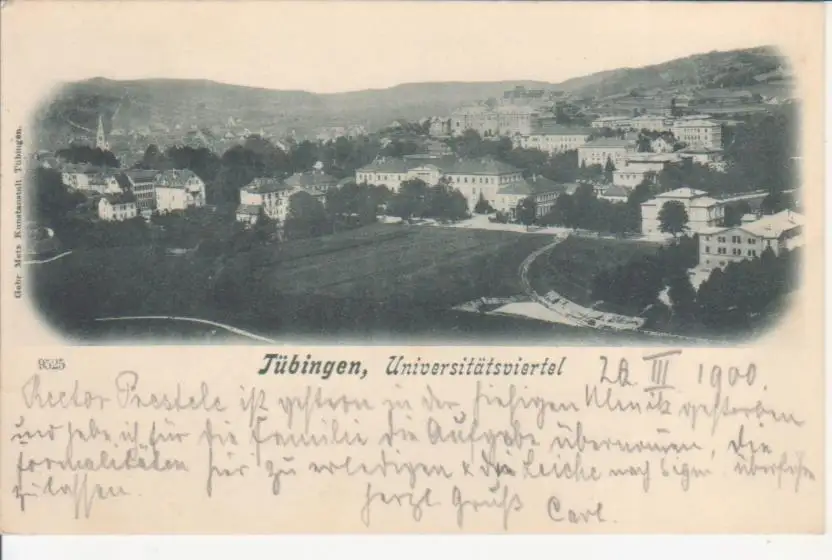 Gebr Metz Kunstanstalt Tübingen.
9525
Tübingen, Universitätsviertel
20 III 1900.
Rector Prestele ist gestern in der hiesigen Klinik gestorben
und habe ich für die Familie die Aufgabe übernommen, die
Formalitäten hier zu erledigen & die Leiche nach Sigm. überführen
zu lassen.
herzl Gruß
Carl.